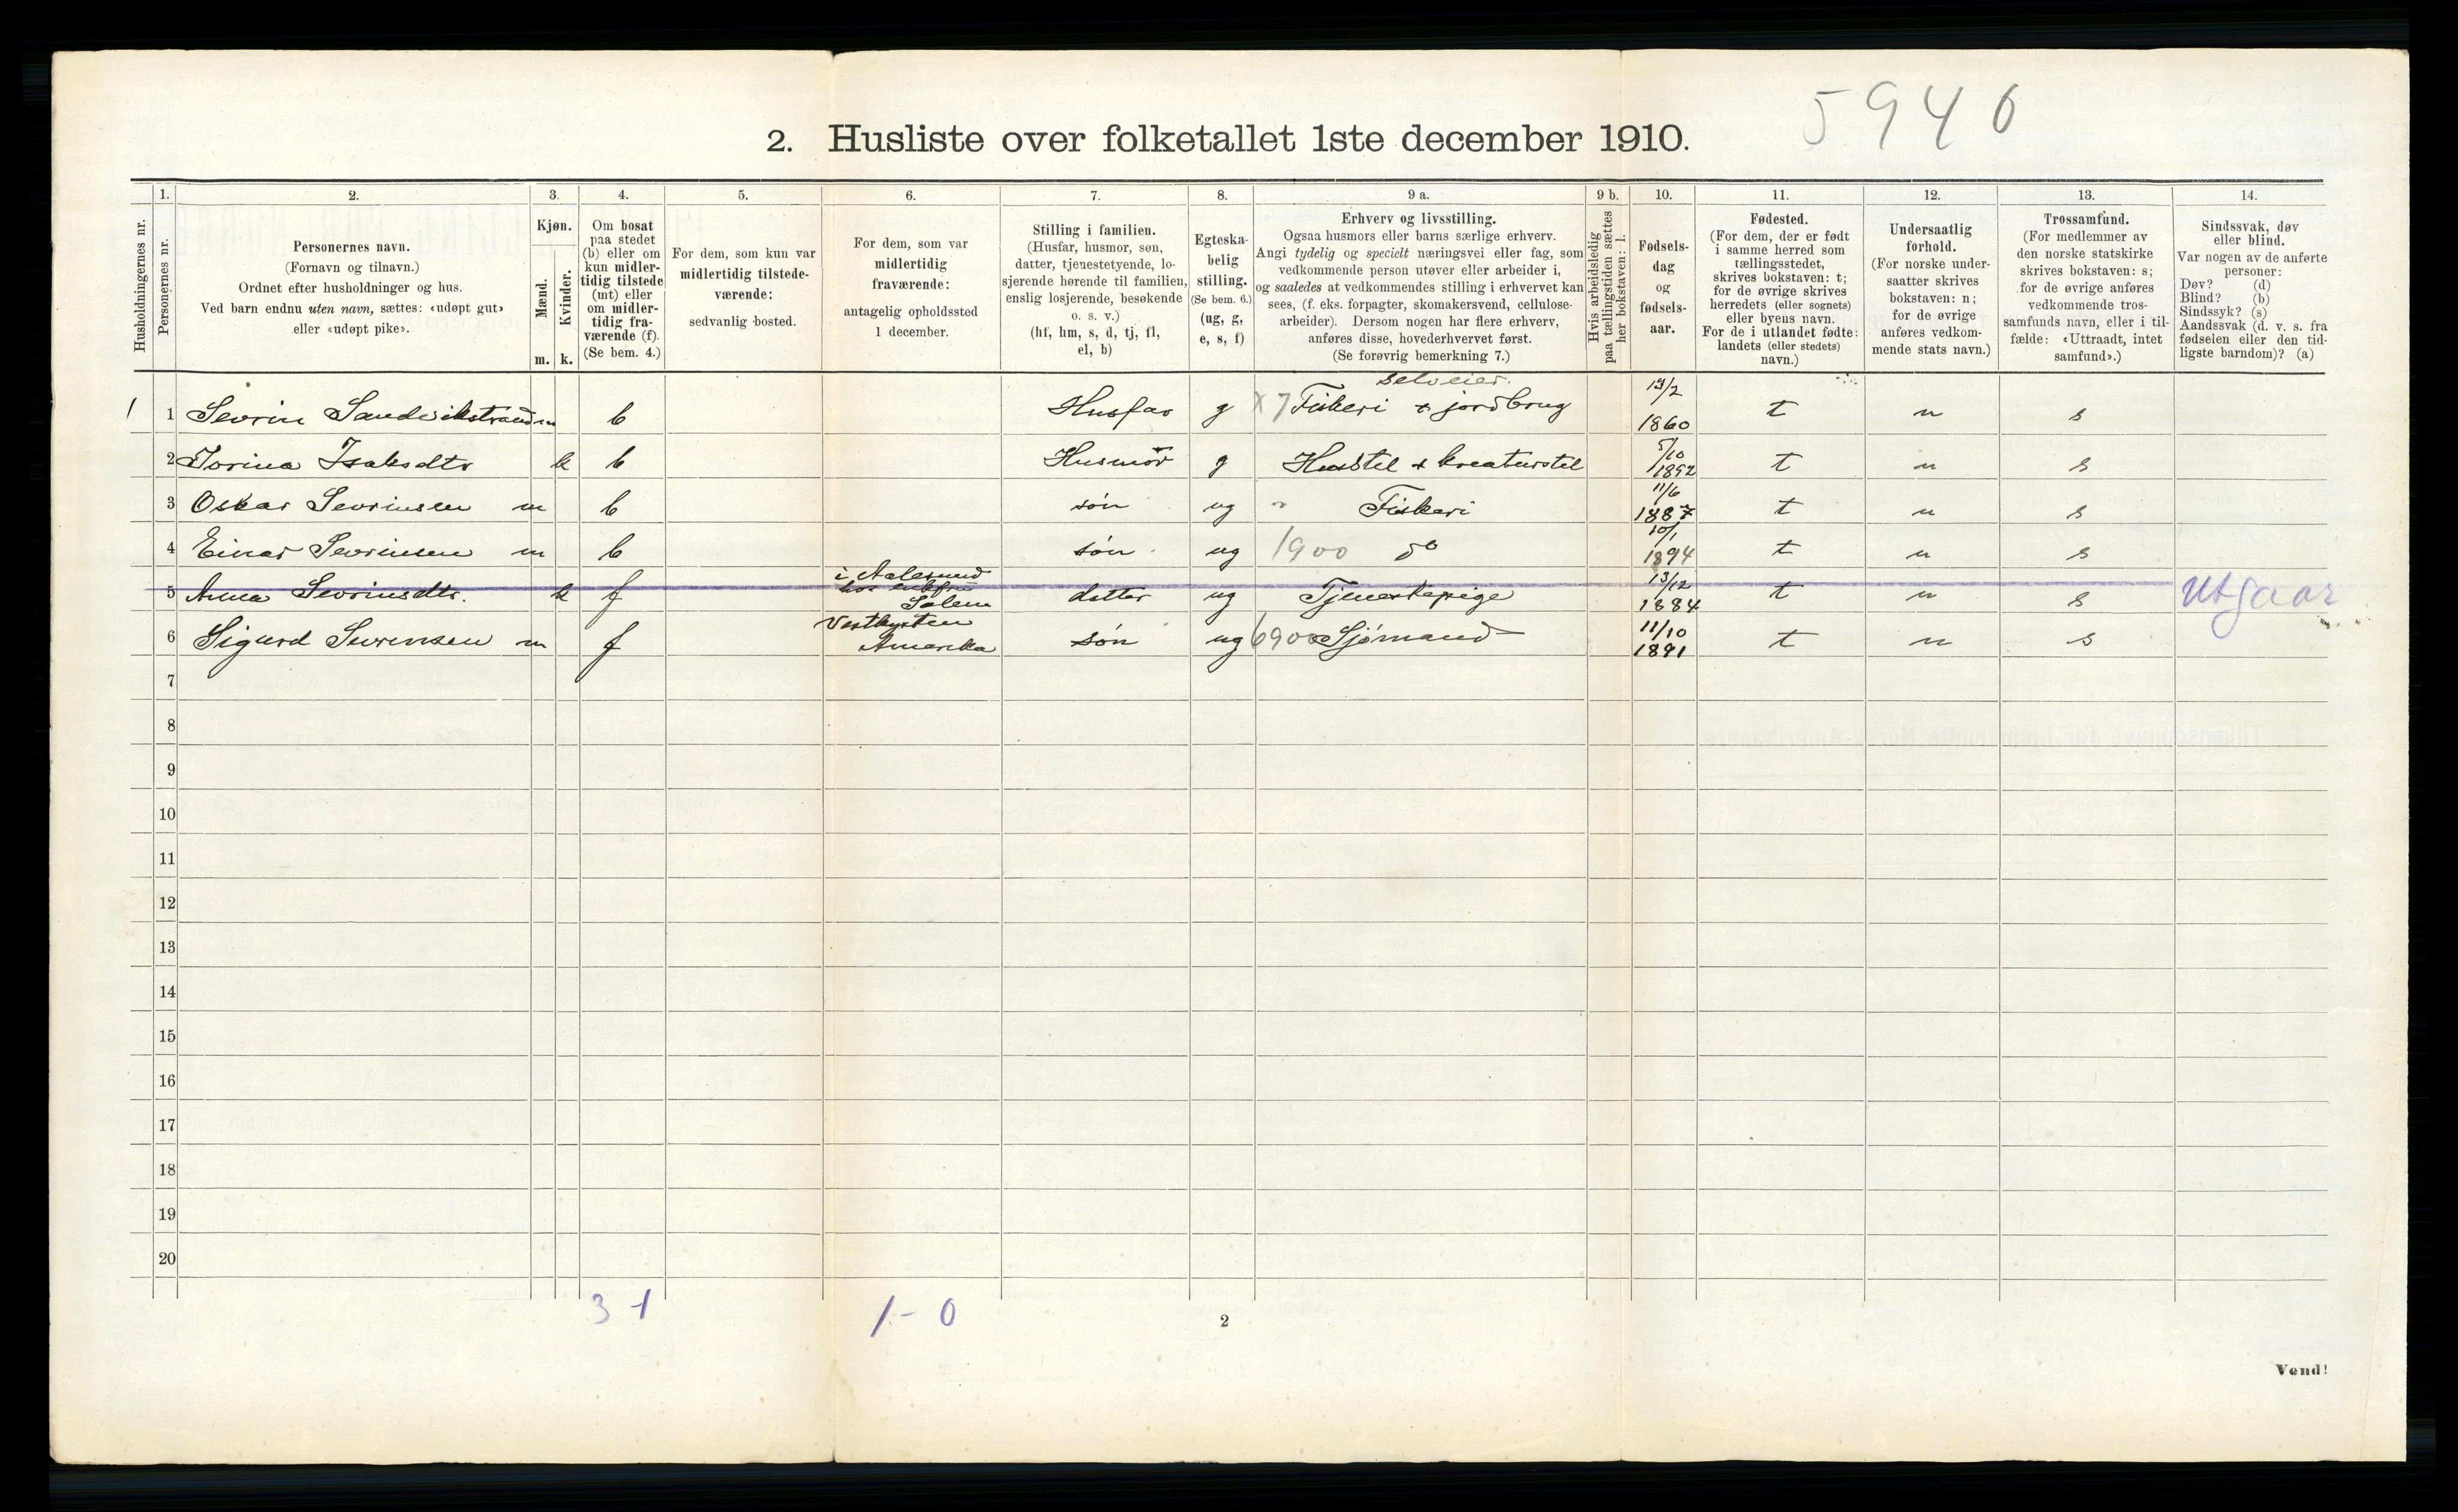 5940
2. Husliste over folketallet 1ste december 1910.
1. 2. 3. 4. 5. 6. 7. 8. 9 a. 9 b. 10. 11. 12. 13. 14.
Husholdningernes nr.
Personernes nr.
Personernes navn.
(Fornavn og tilnavn.)
Ordnet efter husholdninger og hus.
Ved barn endnu uten navn, sættes: «udøpt gut»
eller «udøpt pike».
Kjøn.
Mænd.
Kvinder.
m. k.
Om bosat
paa stedet
(b) eller om
kun midler-
tidig tilstede
(mt) eller
om midler-
tidig fra-
værende (f).
(Se bem. 4.)
For dem, som kun var
midlertidig tilstede-
værende:
sedvanlig bosted.
For dem, som var
midlertidig
fraværende:
antagelig opholdssted
1 december.
Stilling i familien.
(Husfar, husmor, søn,
datter, tjenestetyende, lo-
sjerende hørende til familien,
enslig losjerende, besøkende
o. s. v.)
(hf, hm, s, d, tj, fl,
el, b)
Egteska-
belig
stilling.
(Se bem. 6.)
(ug, g,
e, s, f)
Erhverv og livsstilling.
Ogsaa husmors eller barns særlige erhverv.
Angi tydelig og specielt næringsvei eller fag, som
vedkommende person utøver eller arbeider i,
og saaledes at vedkommendes stilling i erhvervet kan
sees, (f. eks. forpagter, skomakersvend, cellulose-
arbeider). Dersom nogen har flere erhverv,
anføres disse, hovederhvervet først.
(Se forøvrig bemerkning 7.)
Hvis arbeidsledig
paa tællingstiden sættes
her bokstaven: l.
Fødsels-
dag
og
fødsels-
aar.
Fødested.
(For dem, der er født
i samme herred som
tællingsstedet,
skrives bokstaven: t;
for de øvrige skrives
herredets (eller sognets)
eller byens navn.
For de i utlandet fødte:
landets (eller stedets)
navn.)
Undersaatlig
forhold.
(For norske under-
saatter skrives
bokstaven: n;
for de øvrige
anføres vedkom-
mende stats navn.)
Trossamfund.
(For medlemmer av
den norske statskirke
skrives bokstaven: s;
for de øvrige anføres
vedkommende tros-
samfunds navn, eller i til-
fælde: «Uttraadt, intet
samfund».)
Sindssvak, døv
eller blind.
Var nogen av de anførte
personer:
Døv? (d)
Blind? (b)
Sindssyk? (s)
Aandssvak (d. v. s. fra
fødselen eller den tid-
ligste barndom)? (a)
selveier.
1 1 Sevrin Sandvikstrand m b Husfar g x7 Fiskeri & jordbrug 13/2 1860 t n s
2 Jorina Isaksdtr k b Husmor g Husstel & kreaturstel 5/10 1892 t n s
3 Oskar Sevrinsen m b søn ug " Fiskeri 11/6 1887 t n s
4 Einar Sevrinsen m b søn ug 1900 do 10/1 1894 t n s
5 Anna Sevrinsdtr. k f i Aalesund hos enkefru Solem datter ug Tjenestepige 13/12 1884 t n s Utgaar
6 Sigurd Sevrinsen m f Vestkysten Amerika søn ug 6900 Sjømand 11/10 1891 t n s
7
8
9
10
11
12
13
14
15
16
17
18
19
20
3 - 1 1 - 0
2
Vend!